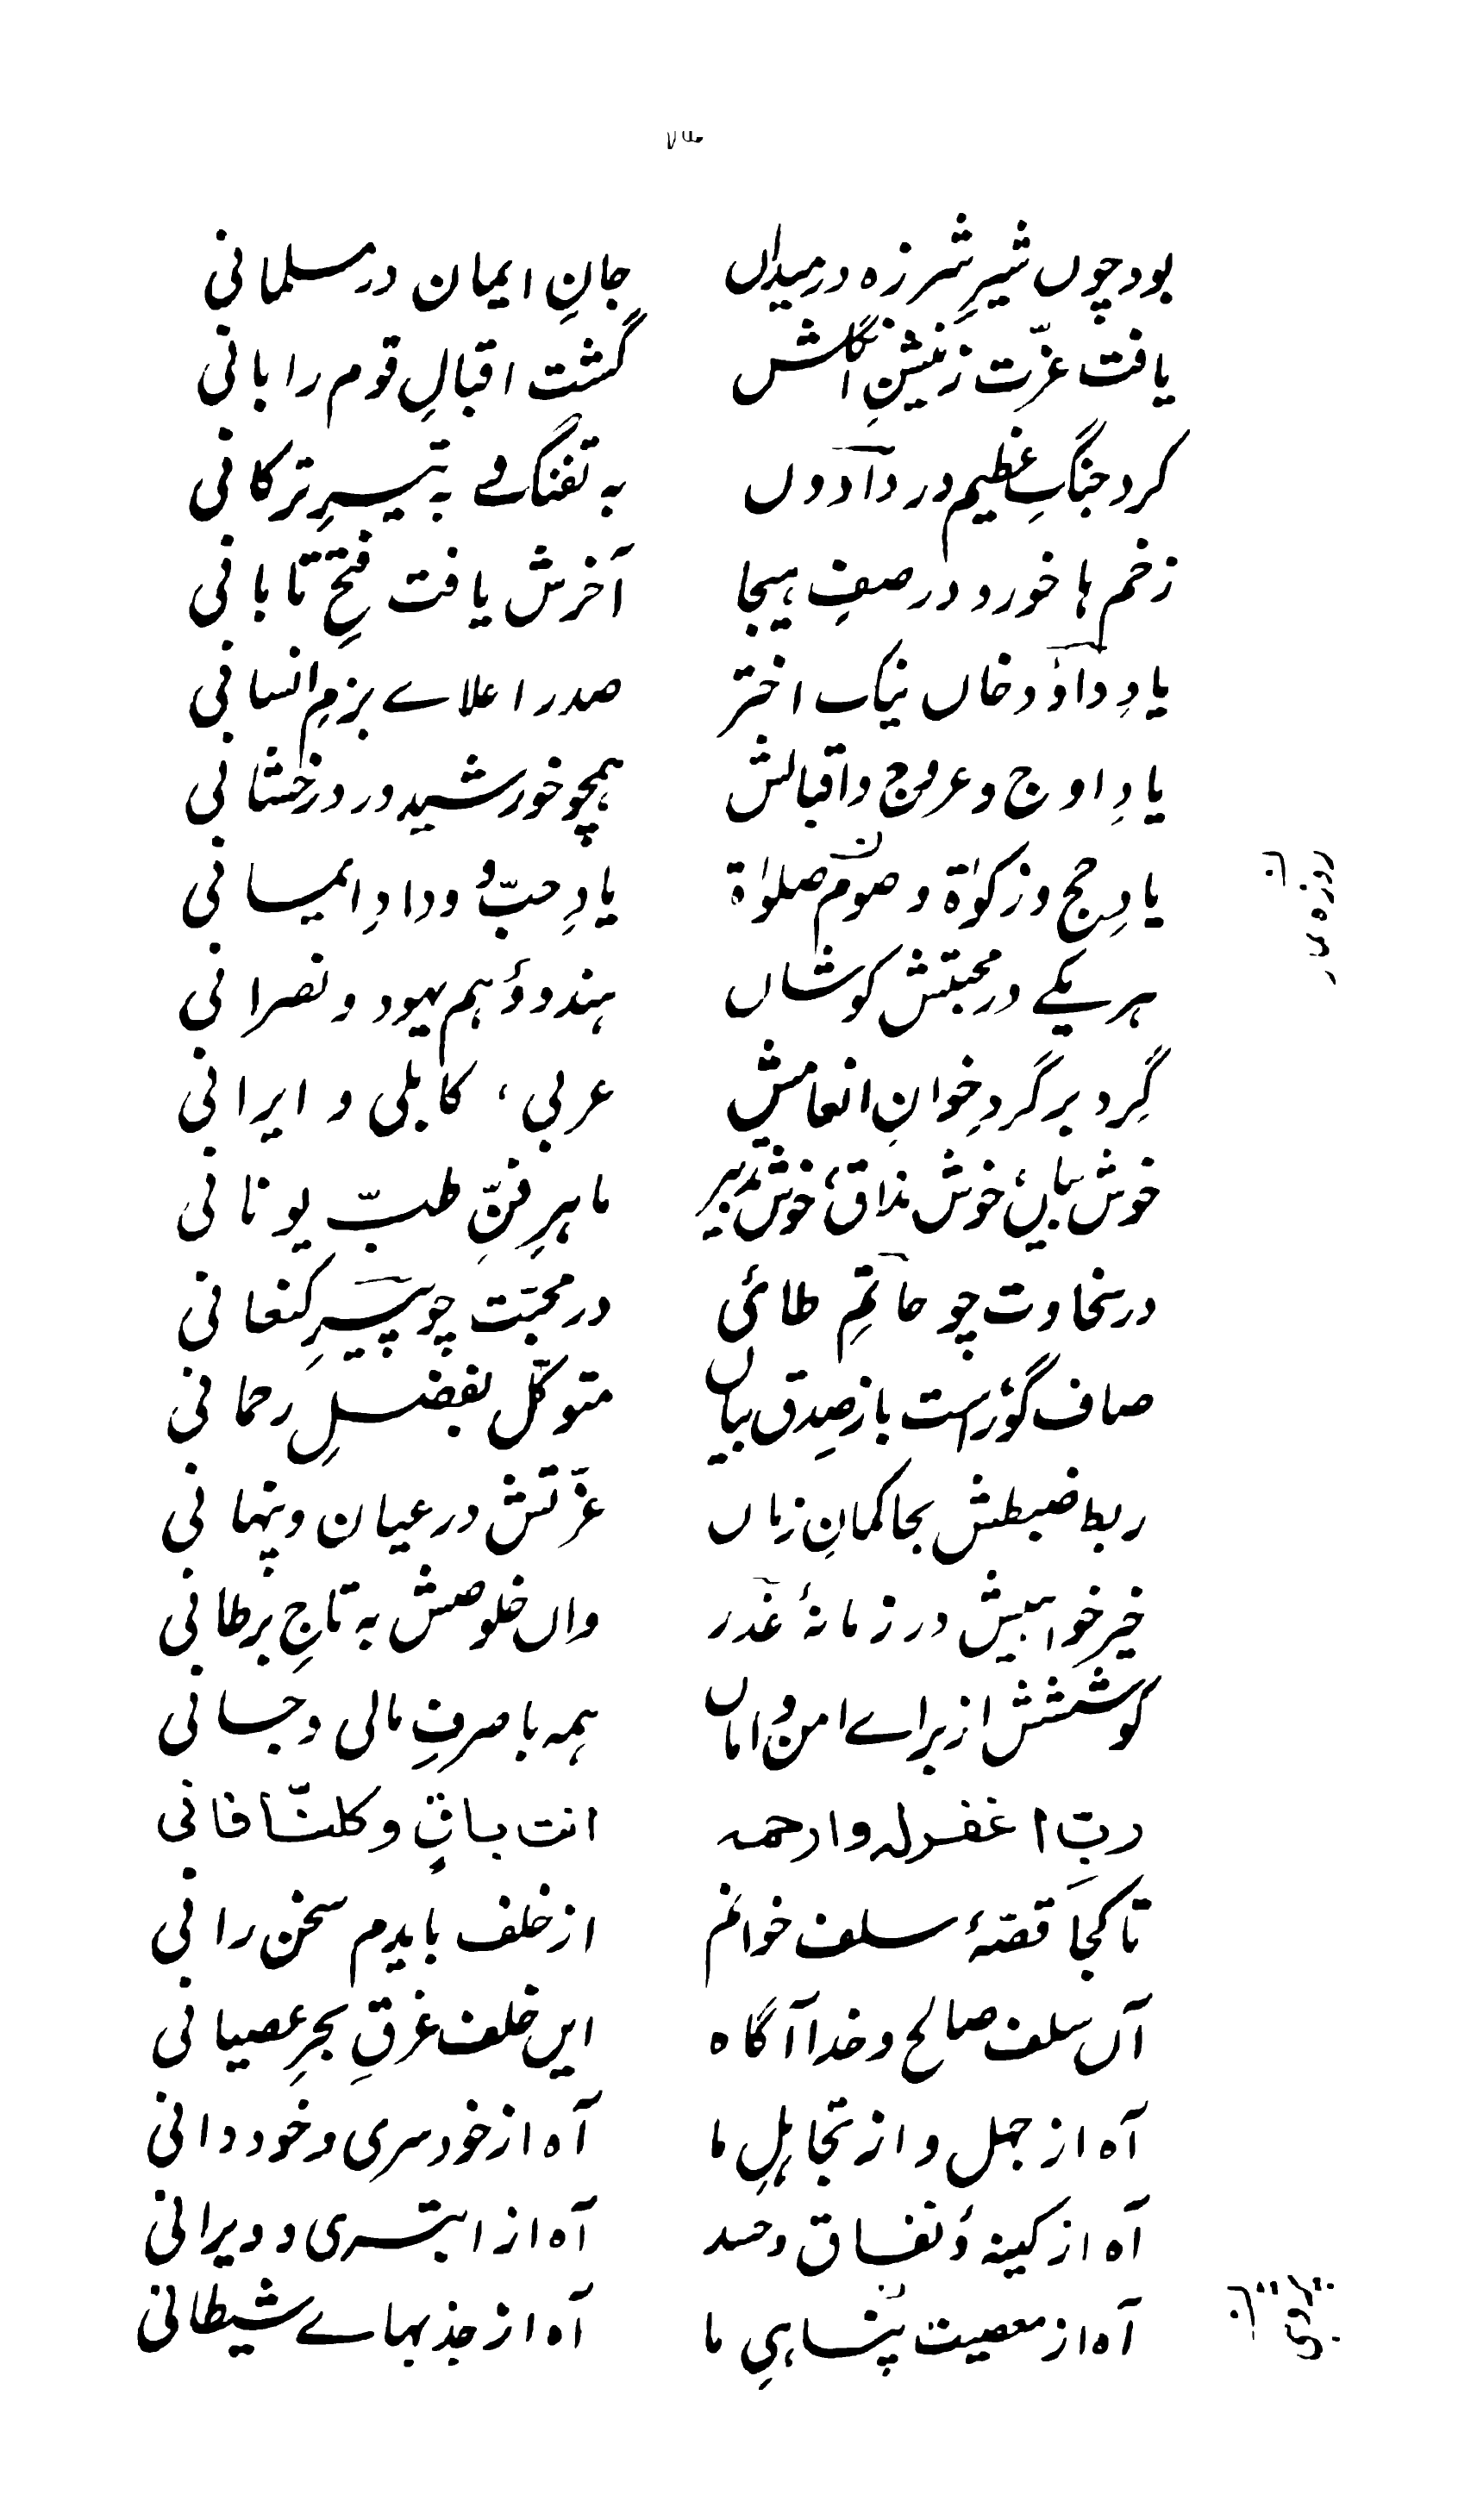 ۷۳
بود چوں شیرِ شرزہ در میداں جانِ ایمان در مسلمانی
یافت عزّت ز نیشنِ انگلش گشت اقبالِ قوم را بانی
کرد جنگِ عظیم در دآدوں بہ تفنگ و بہ تیرِ ترکانی
زخم ہا خورد در صفِ ہیجا آخرش یافت فتحِ تابانی
یادِ داؤد خاں نیک اختر صدر اعلاے بزمِ انسانی
یادِ اوج و عروج و اقبالش ہمچو خورشید در درخشانی
یادِ حج و زکوٰۃ و صوم صلوٰۃ یادِ حبّ و ودادِ ایمانی
ہر یکے در محبتش کوشاں ہندو و ہم یہود و نصرانی
گِرد بر گردِ خوانِ انعامش عربی، کابلی و ایرانی
خوش بیاں، خوش مذاق، خوش تدبیر ماہرِ فنِّ طبِّ یونانی
در سخاوت چو حاتمِ طائی در محبّت چو پیرِ کنعانی
صاف گو، راست باز صدق بیاں متوکّل بفضلِ رحمانی
ربط ضبطش بحاکمانِ زماں عزّتش در عیان و پنہانی
خیر خواہیش در زمانۂ غدر واں خلوصش بہ تاجِ برطانی
کوششش از براے امن و اماں ہمہ با صرفِ مالی و جانی
ربّ اغفر لہ وارحمہ انت باقٍ و کلنّا فانی
تا کجا قصّۂ سلف خوانم از خلف بایدم سخن رانی
آں سلف صالح و خدا آگاہ ایں خلف غرقِ بحرِ عصیانی
آہ از جہل و از تجاہلِ ما آہ از خودسری و خود دانی
آہ از کینہ و نفاق و حسد آہ از ابتری و ویرانی
آہ از معصیت پناہیِ ما آہ از جذبہاے شیطانی